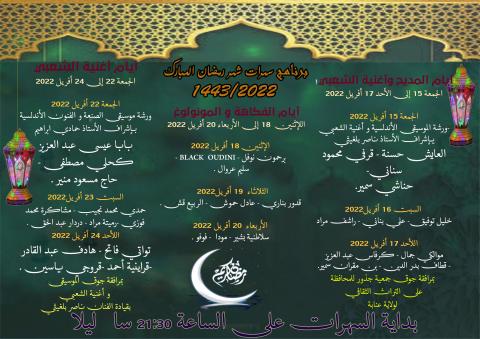 برنامج سهرات شهر رمضان المبارك
1443/2022
أيام المديح وأغنية الشعبي
الجمعة 15 إلى الأحد 17 أفريل 2022
الجمعة 15 أفريل 2022
-ورشة الموسيقى الأندلسية و أغنية الشعبي
بإشراف الأستاذ ناصر بلغيثي
العايش حسنة - قرفي محمود
سناني-
حناشي سمير.
السبت 16 أفريل 2022
خليل توفيق- علي بناني- راشف مراد
الأحد 17 أفريل 2022
موالكي جمال - كرفاس عبد العزيز
- قطاف بدر الدين - بن مقران سمير.
بمرافقة جوق جمعية جذور للمحافظة
على التراث الثقافي
لولاية عنابة
أيام الفكاهة و المونولوغ
اللإثنين 18 إلى الأربعاء 20 أفريل 2022
الإثنين 18 أفريل 2022
برحمون نوفل - BLACK OUDINI -
سليم عروال.
الثلاثاء 19 أفريل 2022
قدور بناري- عادل حموش - الربيع قشي.
الأربعاء 20 أفريل 2022
سلاطنية بشير - مودا - فوفو.
رمضان كريم
أيام أغنية الشعبي
الجمعة 22 إلى 24 أفريل 2022
الجمعة 22 أفريل 2022
ورشة موسيقى الصنعة و الفنون الأندلسية
بإشراف الأستاذ حمادي ابراهيم
بابا عيسى عبد العزيز
كحلي مصطفى
حاج مسعود منير.
السبت 23 أفريل 2022
حمدي محمد نجيب - مشاكرة محمد
فوزي -رميتة مراد - دردار عبد الحق.
الأحد 24 أفريل 2022
تواتي فاتح - هادف عبد القادر
-قراينية أحمد -قروجي ياسين.
بمرافقة جوق الموسيقي
و أغنية الشعبي
بقيادة الفنان ناصر بلغيثي
بداية السهرات على الساعة 21:30 سا ليلا